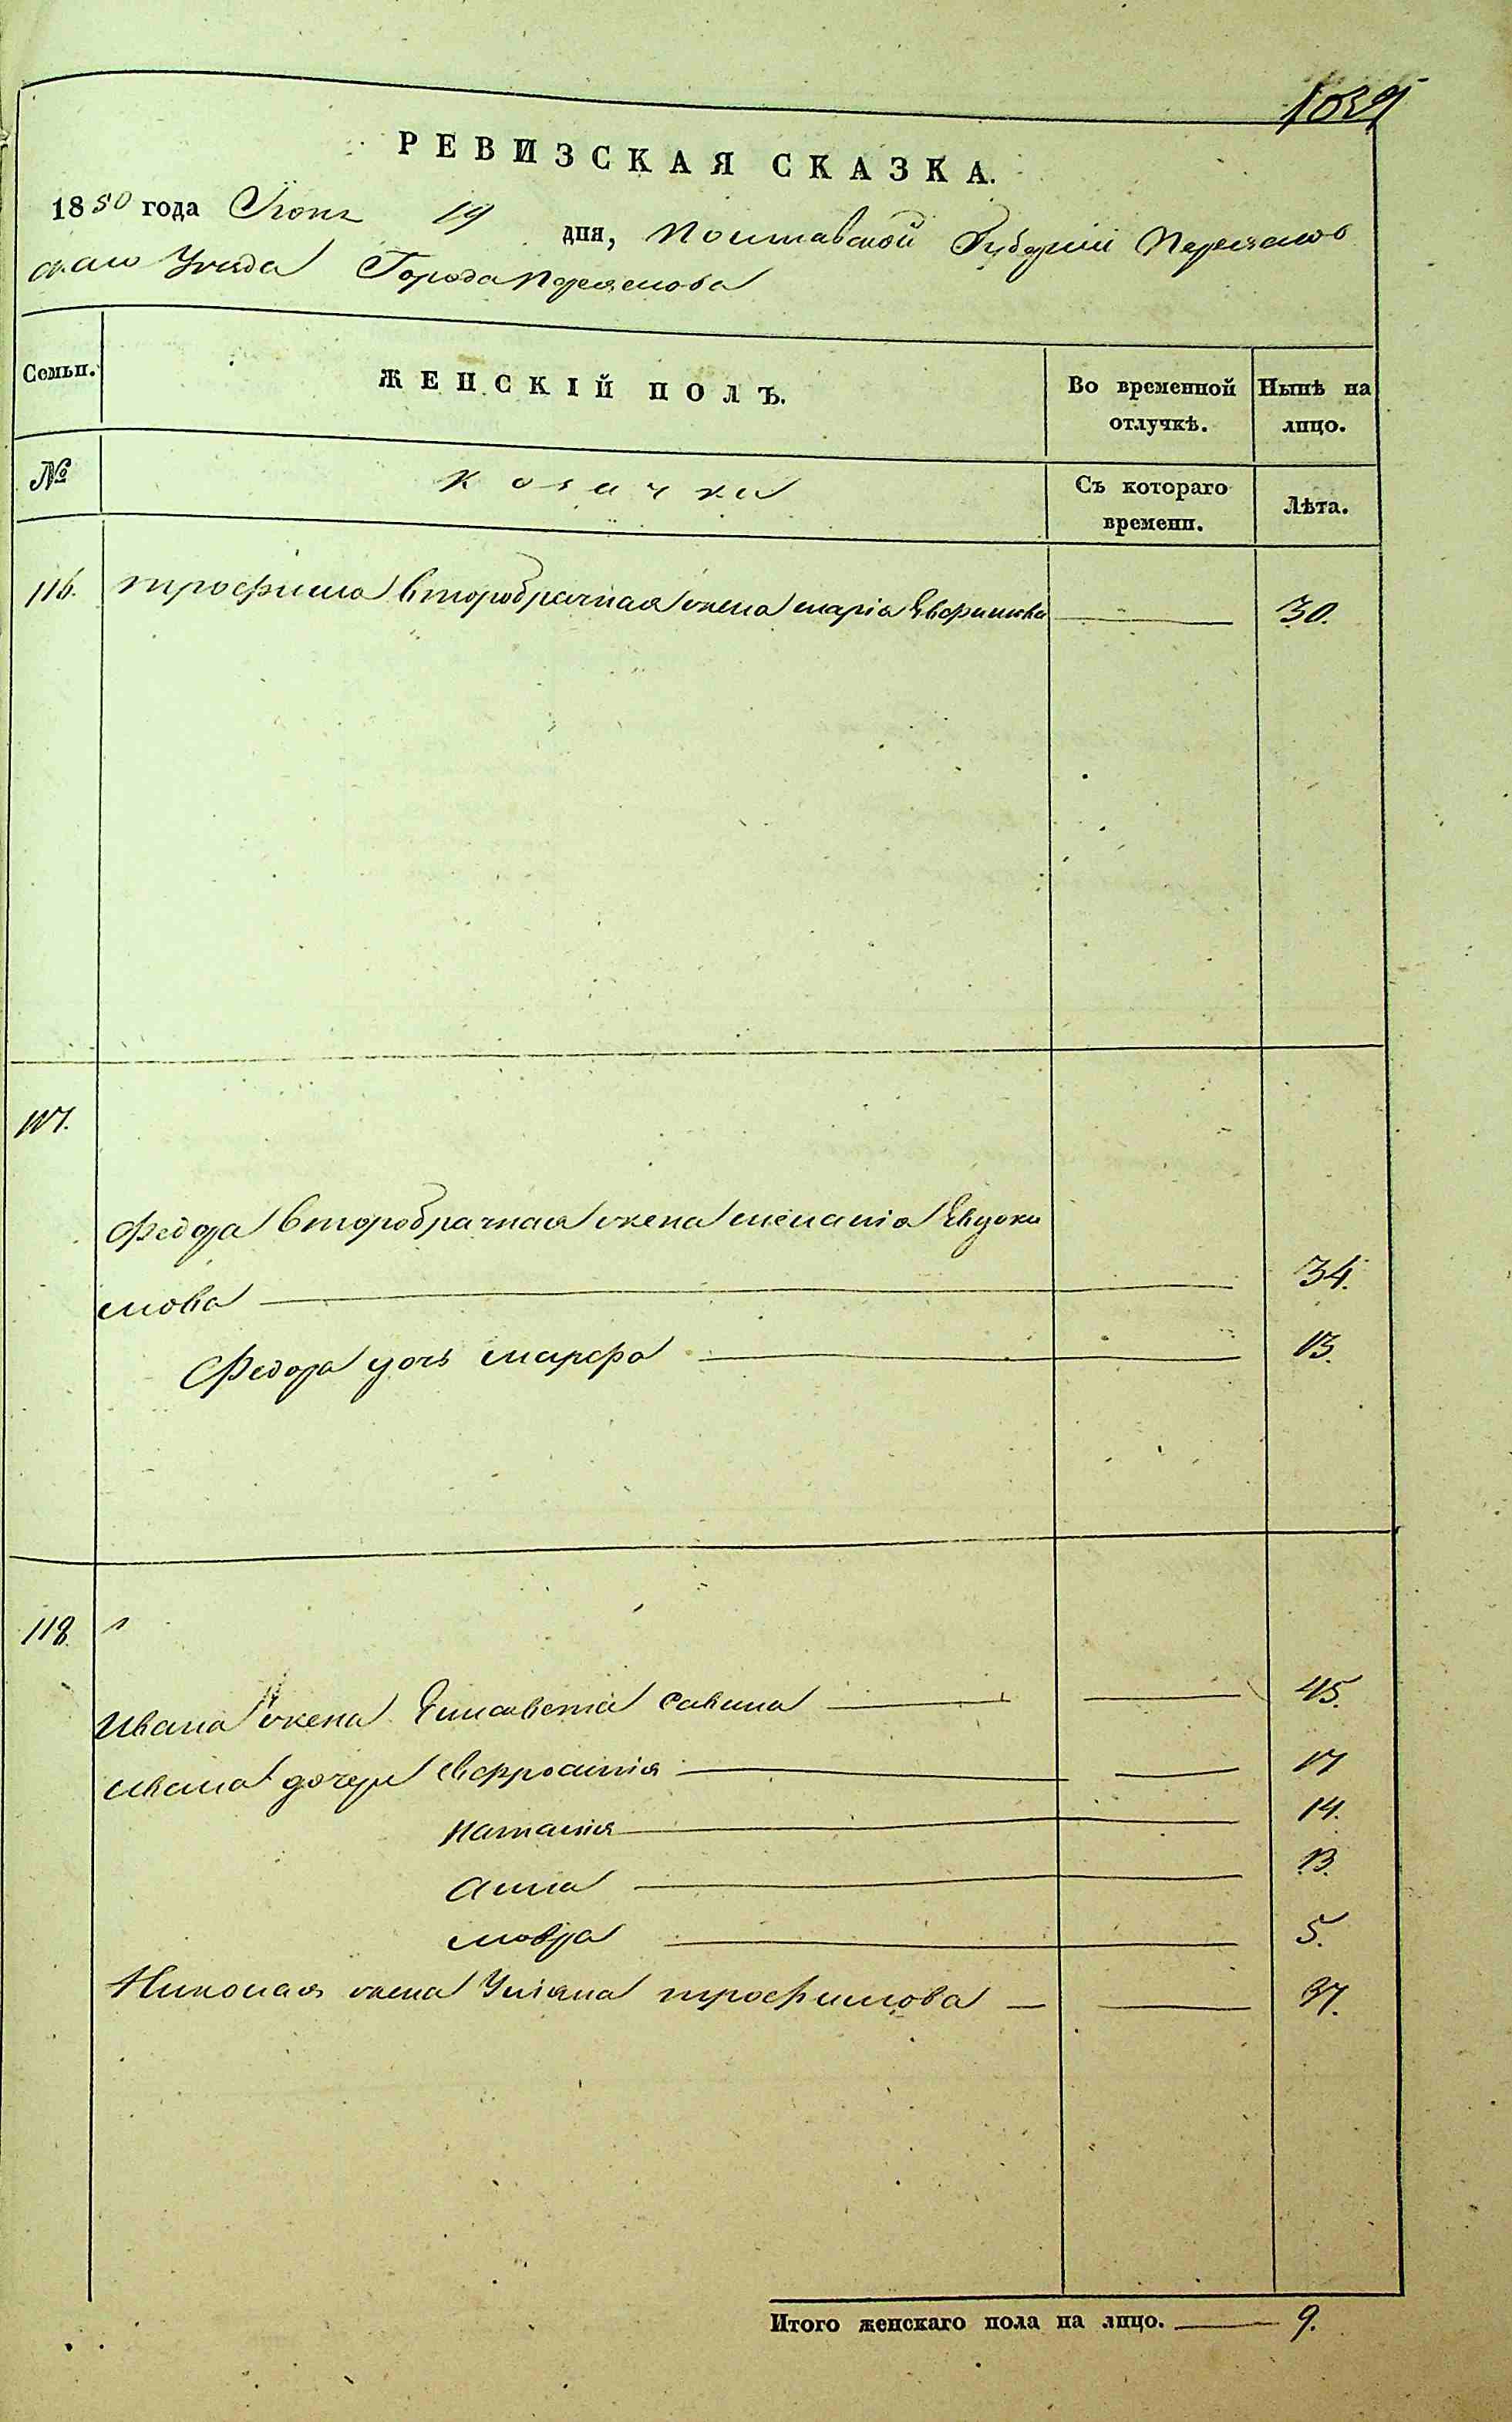 1039
РЕВИЗСКАЯ СКАЗКА.
1850 года Іюня 19 дня, Полтавской Губерніи Переяслов
скаго Уезда Города Переяслова
Семьи. ЖЕНСКІЙ ПОЛЪ. Во временной отлучкѣ. Нынѣ на лицо.
№ Козачки Съ котораго времени. Лѣта.
116. трофима второбрачная жена марія Евфимова 30.
117.
Федора второбрачная жена меланія Евдоки
мова 34.
Федора дочь марфа 13.
118.
Ивана жена Елисавета савина 45.
ивана дочери Евфросинія 17
наталія 14.
анна 13.
мовра 5.
Николая жена Уліяна трофимова 37.
Итого женскаго пола на лицо. 9.